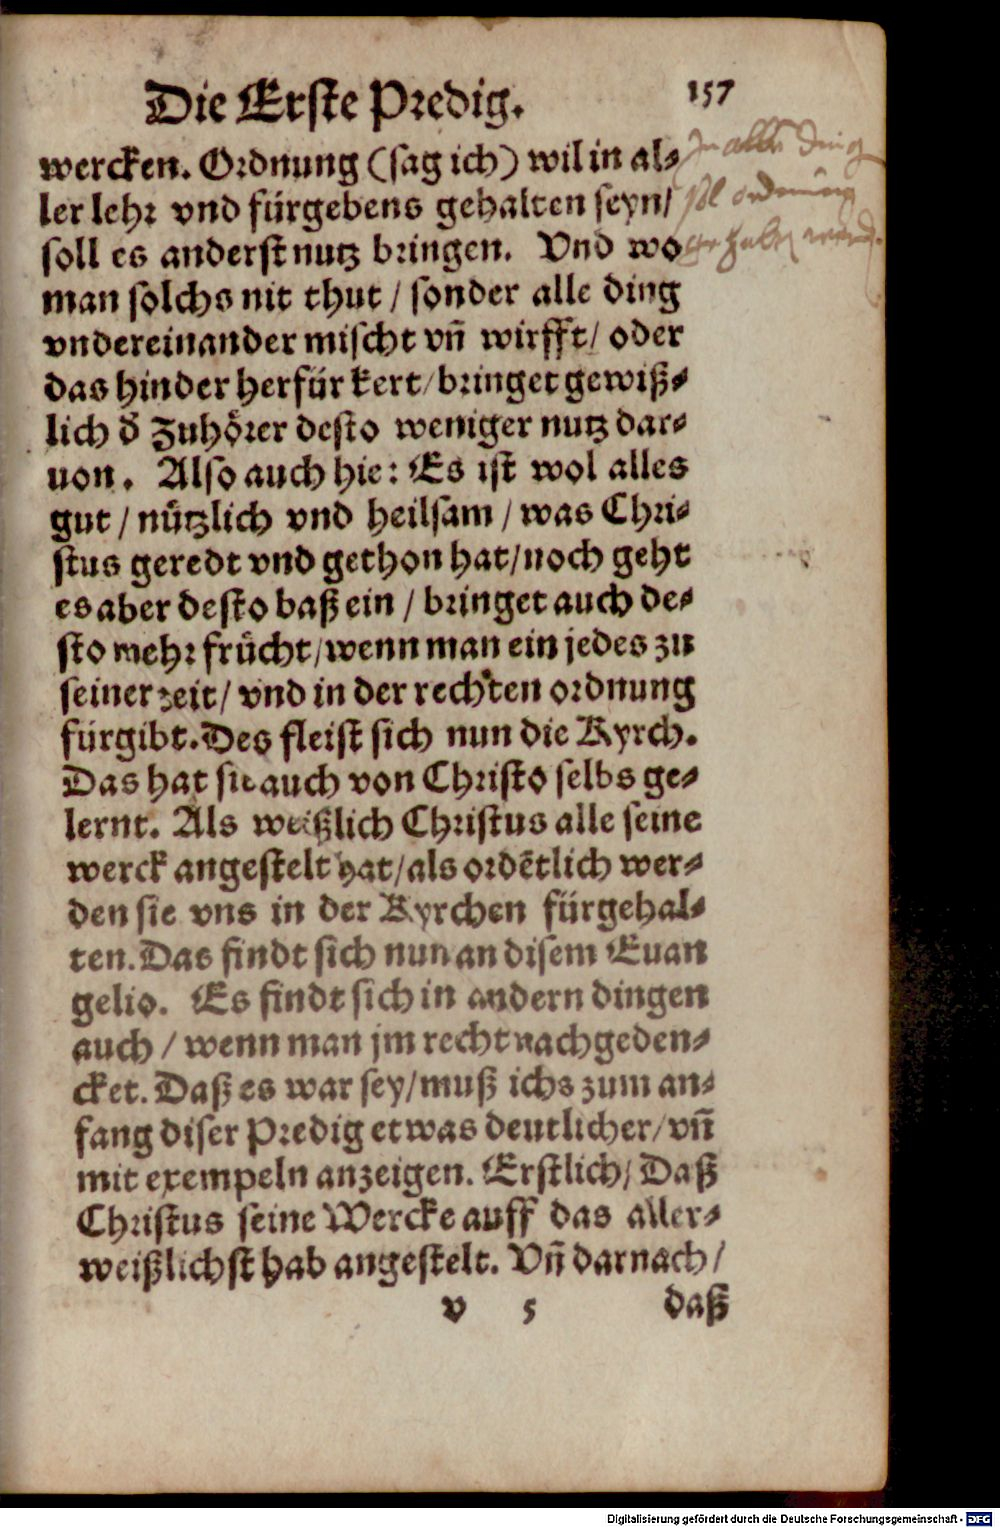 Die Erste Predig. 157
wercken. Ordnung (sag ich) wil in al-
ler lehr vnd fürgebens gehalten seyn/
soll es anderst nutz bringen. Vnd wo
man solchs nit thut / sonder alle ding
vndereinander mischt vn̄ wirfft/ oder
das hinder herfür kert/bringet gewiß-
lich d̓ Zuhörer desto weniger nutz dar-
uon. Also auch hie: Es ist wol alles
gut / nützlich vnd heilsam / was Chri-
stus geredt vnd gethon hat/noch geht
es aber desto baß ein / bringet auch de-
sto mehr frücht/wenn man ein jedes zu
seiner zeit/ vnd in der rechten ordnung
fürgibt. Des fleist sich nun die Kyrch.
Das hat sie auch von Christo selbs ge-
lernt. Als weißlich Christus alle seine
werck angestelt hat/als ordētlich wer-
den sie vns in der Kyrchen fürgehal-
ten. Das findt sich nun an disem Euan
gelio. Es findt sich in andern dingen
auch / wenn man jm recht nachgeden-
cket. Daß es war sey/muß ichs zum an-
fang diser Predig etwas deutlicher/vn̄
mit exempeln anzeigen. Erstlich/ Daß
Christus seine Wercke auff das aller-
weißlichst hab angestelt. Vn̄ darnach/
v 5 daß
In alle ding
sol ordnung
gehalten werd.
Digitalisierung gefördert durch die Deutsche Forschungsgemeinschaft - DFG